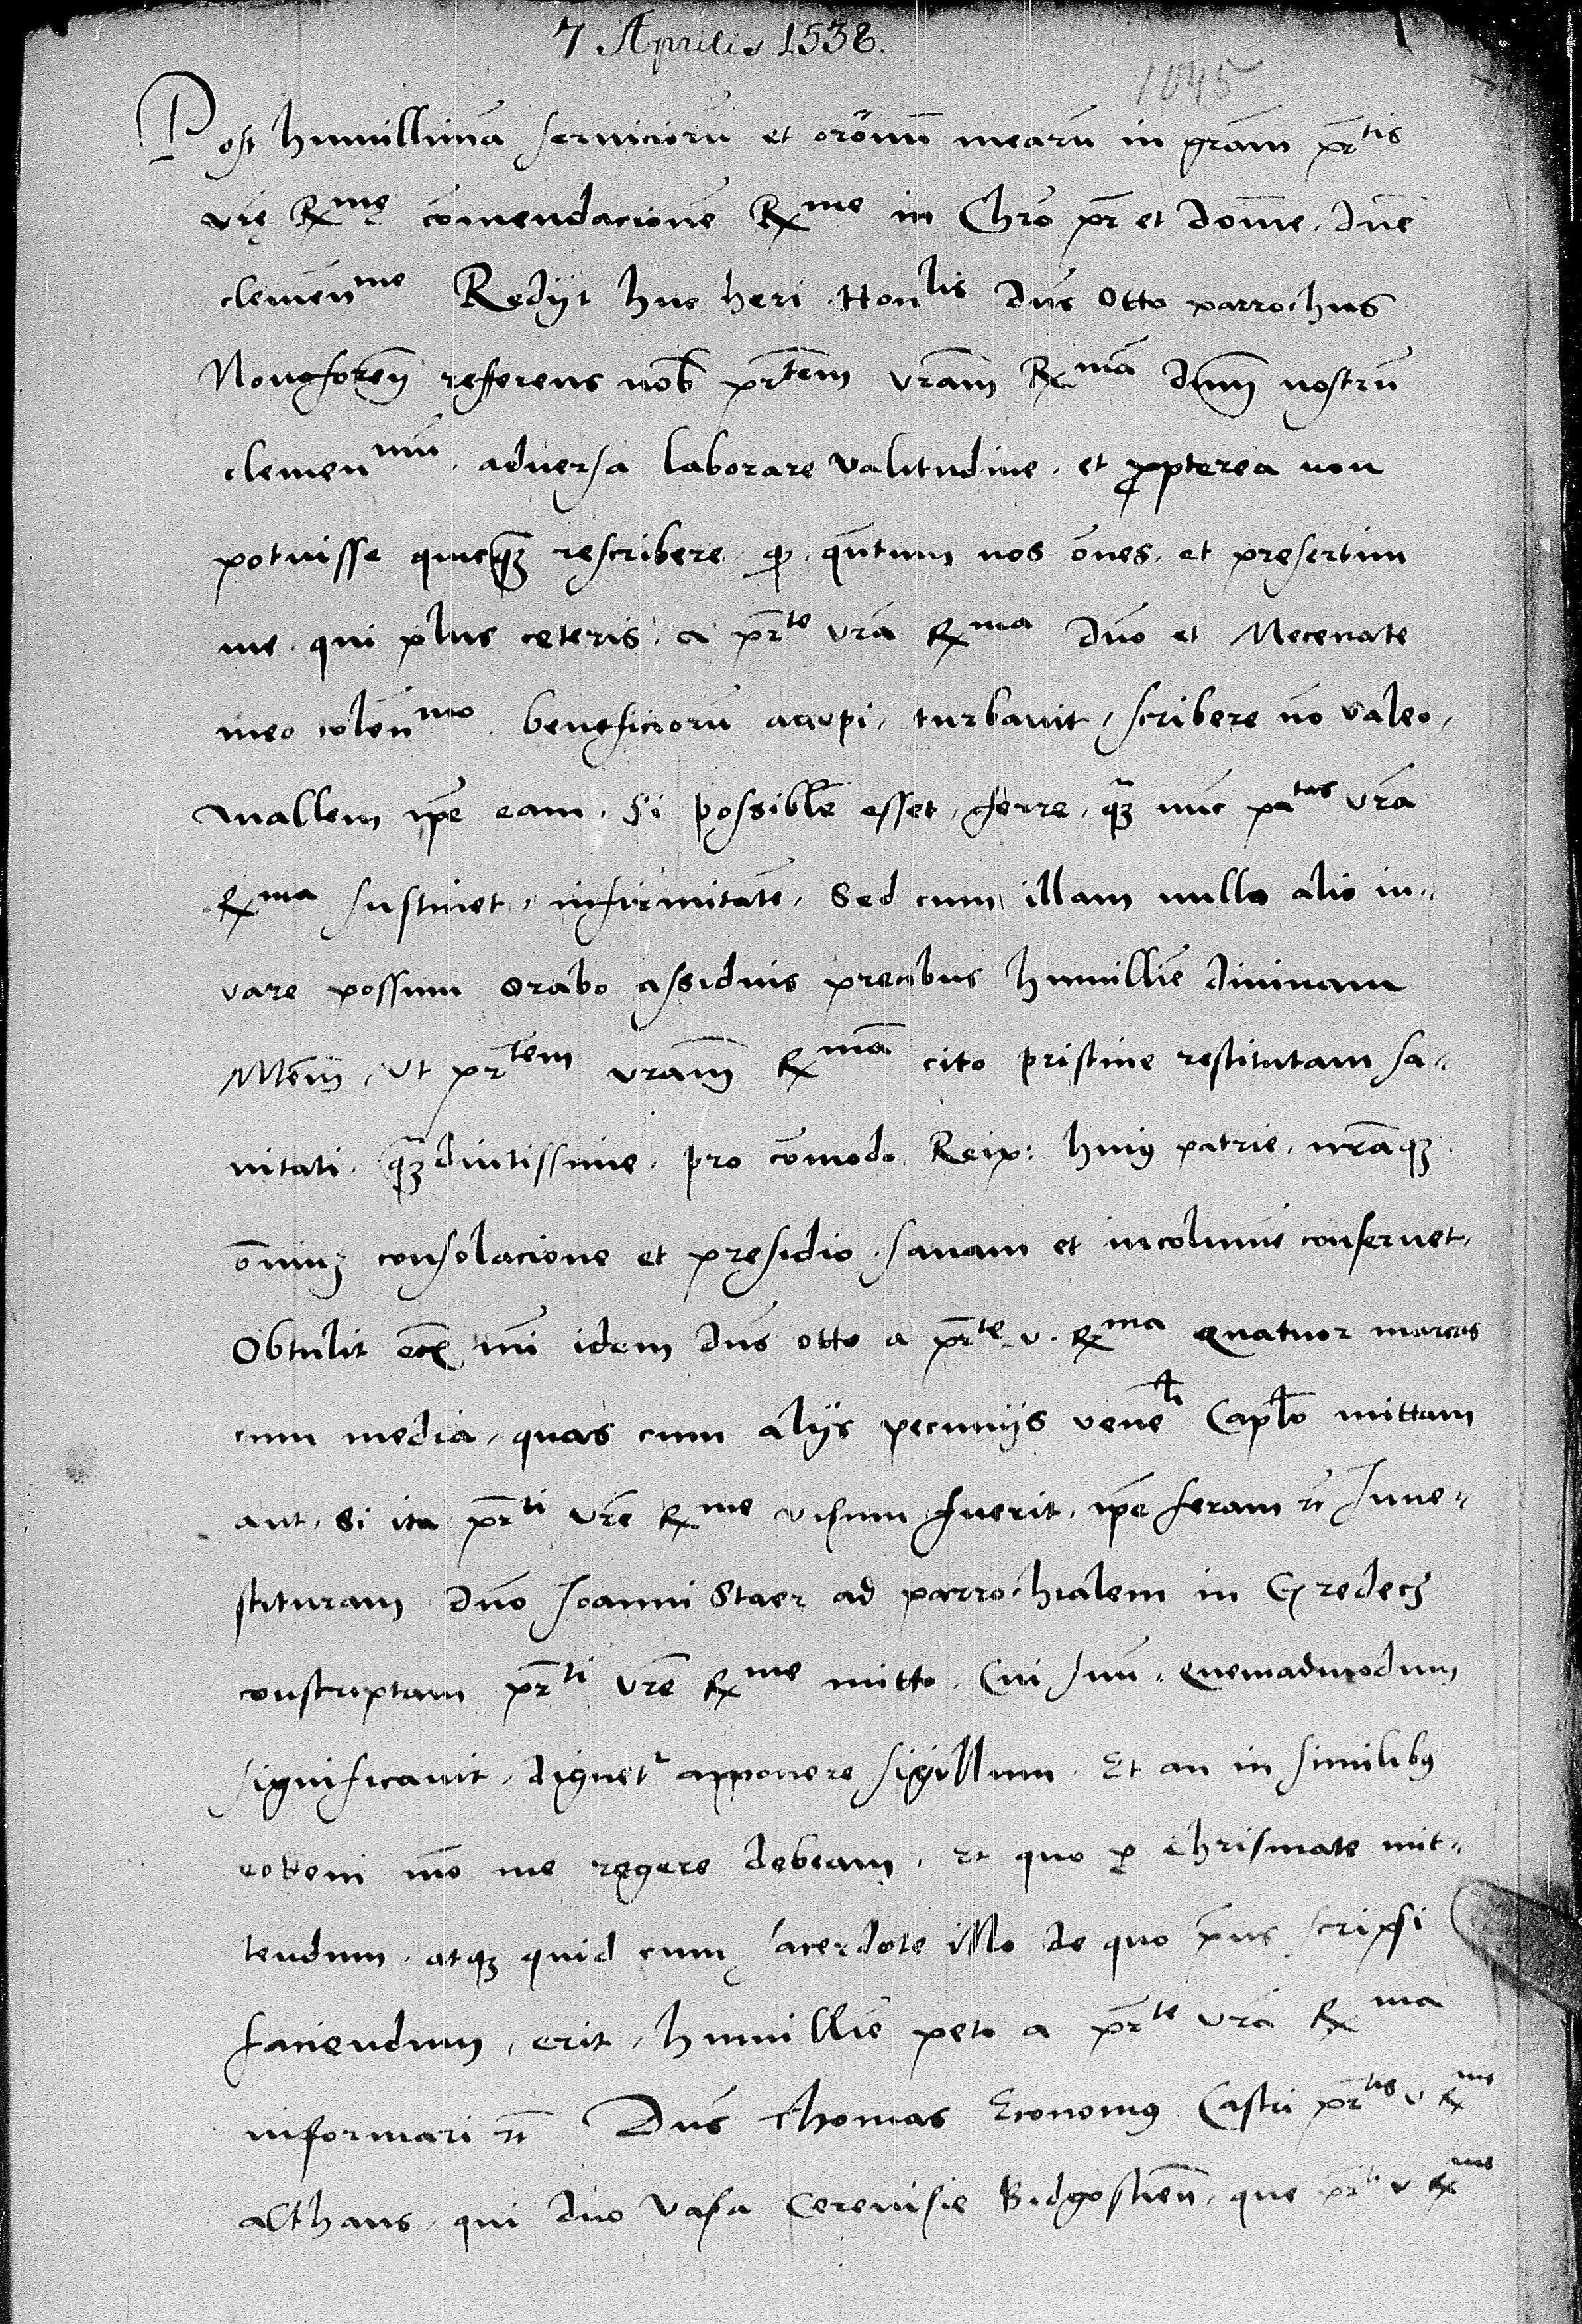 7 Aprilis 1538.
1045
Post humillimā seruiciorū et orōnum mearū in grām pr̄tis
vrę Rxmę cōmendacionē Rxme in Chrō pr̄ et domīe, dn̄e
clemēnme Redijt huc heri Honlis dn̄s Otto parrochus
Nouoforeñ refferens nob̄ pr̄tem vrām Rxmā dnm̄ nostrū
clemenmū, aduersa laborare valitudine, et propterea non
potuisse quicq̄ꝫ rescribere, qd, qn̄tum nos ōnes, et presertim
me, qui plus ceteris, a pr̄te vrā Rxma dn̄o et Mecenate
meo colēnmo, beneficiorū accepi, turbauit, scribere nō valeo,
mallem ip̄e eam, Si possible esset, ferre, q̄ꝫ nūc pa̅tas vrā
Rxma sustinet, infirmitatē, Sed cum illam nullo alio iu-
vare possum Orabo assiduis precibus humillīe diuinam
Mtem̄, Vt pr̄tem vrām Rxmā cito pristine restitutam sa-
nitati, q̄ꝫ diutissime, pro cōmodo Reip: huiꝯ patrie, nrāqꝫ
ōniuꝫ consolacione et presidio, sanam et incolumē conseruet,
Obtulit eciā mī idem dn̄s Otto a pr̄te v. Rxma quatuor marcas
cum media, quas cum alijs pecunijs veneli Caplo mittam
aut, Si ita pr̄ti vrē Rxme visum fuerit, ip̄e feram r̄i Inue-
stituram dn̄o Joanni Staer ad parrochialem in Gredecz
conscriptam pr̄ti vrē Rxme mitto, Cui suū, quemadmodum
significauit, dignetr apponere sigillum, Et an in similibꝯ
eodem mō me regere debeam, Et quo p̱ Chrismate mit-
tendum, atqꝫ quid cum sacerdote illo de quo pr̄us scripsi
faciendum, erit, humillīe peto a pr̄te vrā Rxma
informari r̄i Dn̄s Thomas Economꝯ Castri pr̄tis v Rxme
Althaus, qui duo vasa Cereuisie Bidgostieñ, que pr̄ti v Rxme